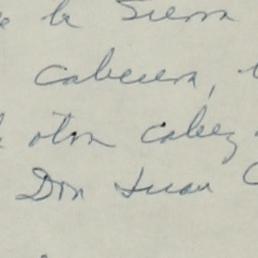 de la Sierra
Cabecera,
otra cabez
Don Juan C